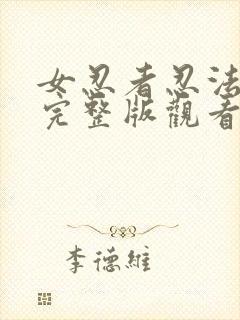 女忍者忍法
完整版觀看
李德維